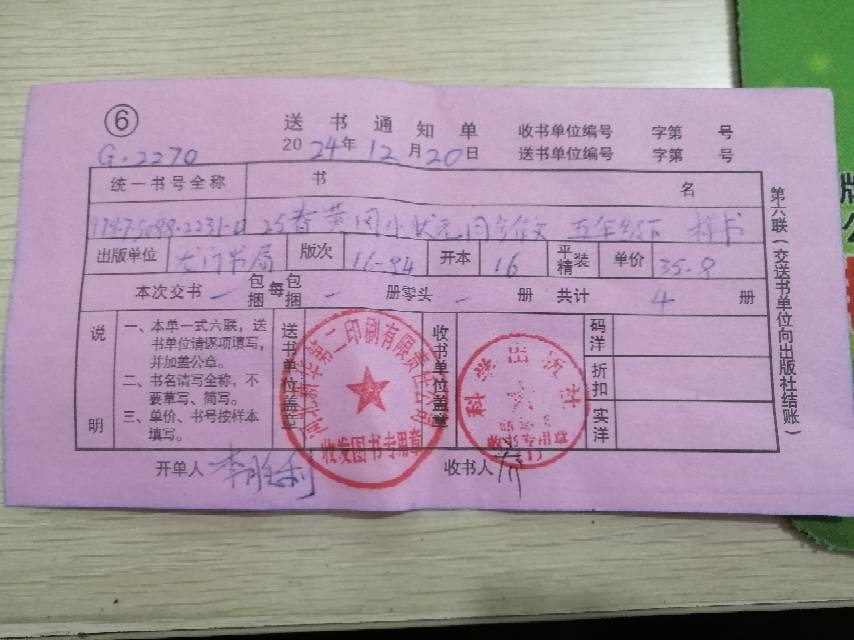 ⑥
送书通知单 收书单位编号 字第 号
G.2270 2024年12月20日 送书单位编号 字第 号
统一书号全称 书 名
978-7-5088-2231-0 25春黄冈小状元同步作文 五年级下 样书
出版单位 龙门书局 版次 16-84 开本 16 平精装 单价 35.8
本次交书 一 包捆 每包捆 一 册零头 一 册 共计 4 册
说明
一、本单一式六联，送
书单位请逐项填写，
并加盖公章。
二、书名请写全称，不
要草写、简写。
三、单价、书号按样本
填写。
送书单位盖章
河北新华第二印刷有限责任公司
收发图书专用章
收书单位盖章
科学出版社
收书专用章
(1)
码洋
折扣
实洋
开单人 李胜利 收书人
第六联（交送书单位向出版社结账）